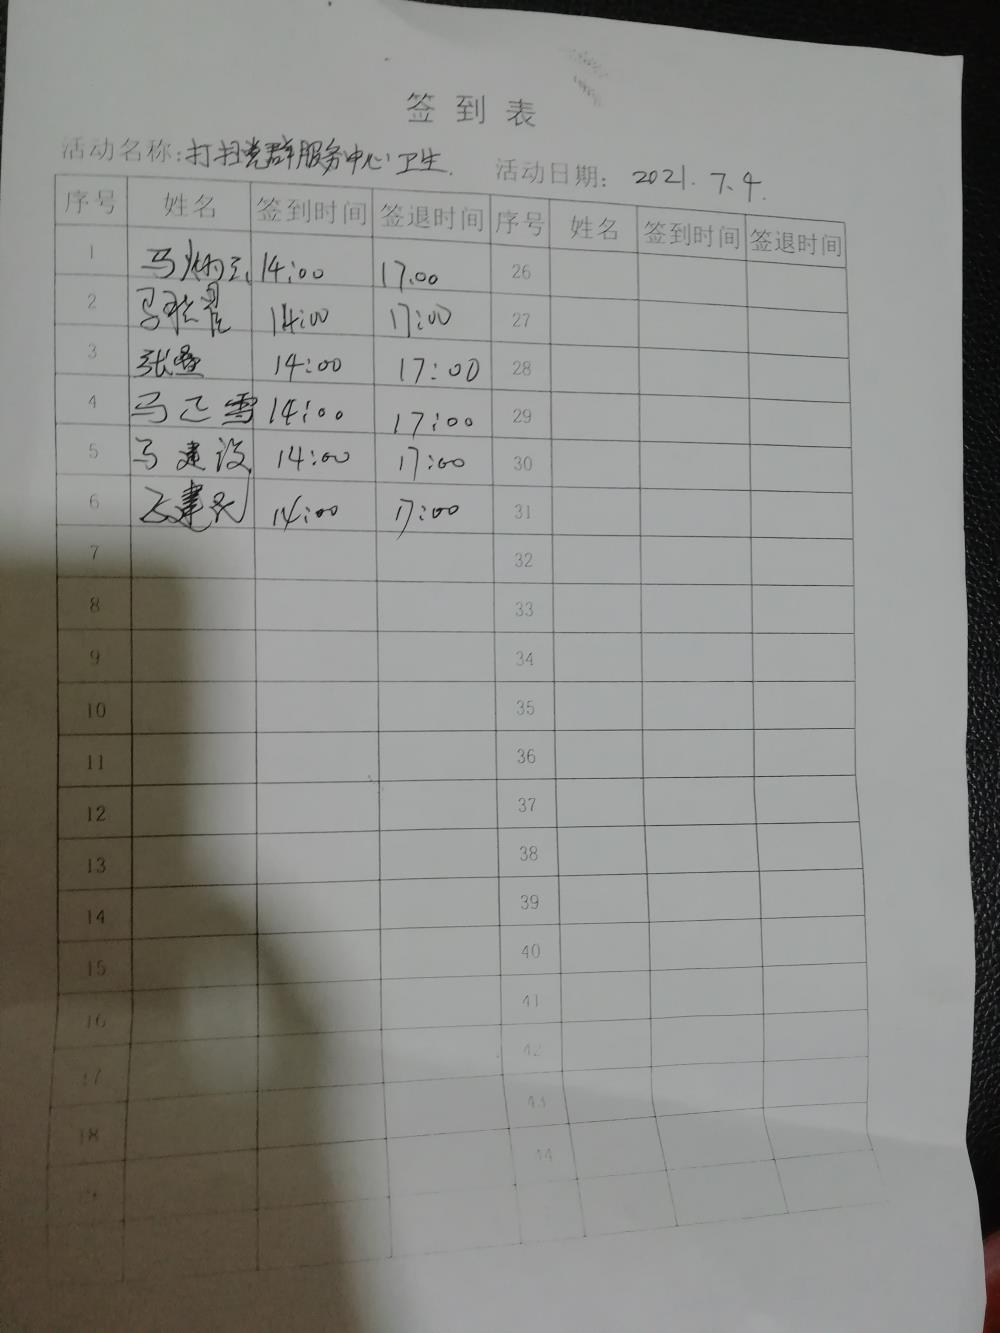 签到表
活动名称:打扫党群服务中心卫生. 活动日期: 2021.7.4.
序号 姓名 签到时间 签退时间 序号 姓名 签到时间 签退时间
1 马 14:00 17:00 26
2 马 14:00 17:00 27
3 张 14:00 17:00 28
4 马 雪 14:00 17:00 29
5 马建设 14:00 17:00 30
6 建民 14:00 17:00 31
7 32
8 33
9 34
10 35
11 36
12 37
13 38
14 39
15 40
16 41
17 42
18 43
44